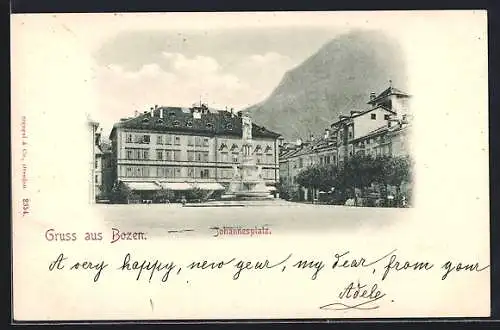 Stengel & Co., Dresden 8854.
Gruss aus Bozen.
Johannesplatz.
A very happy, new year, my dear, from your
Adele